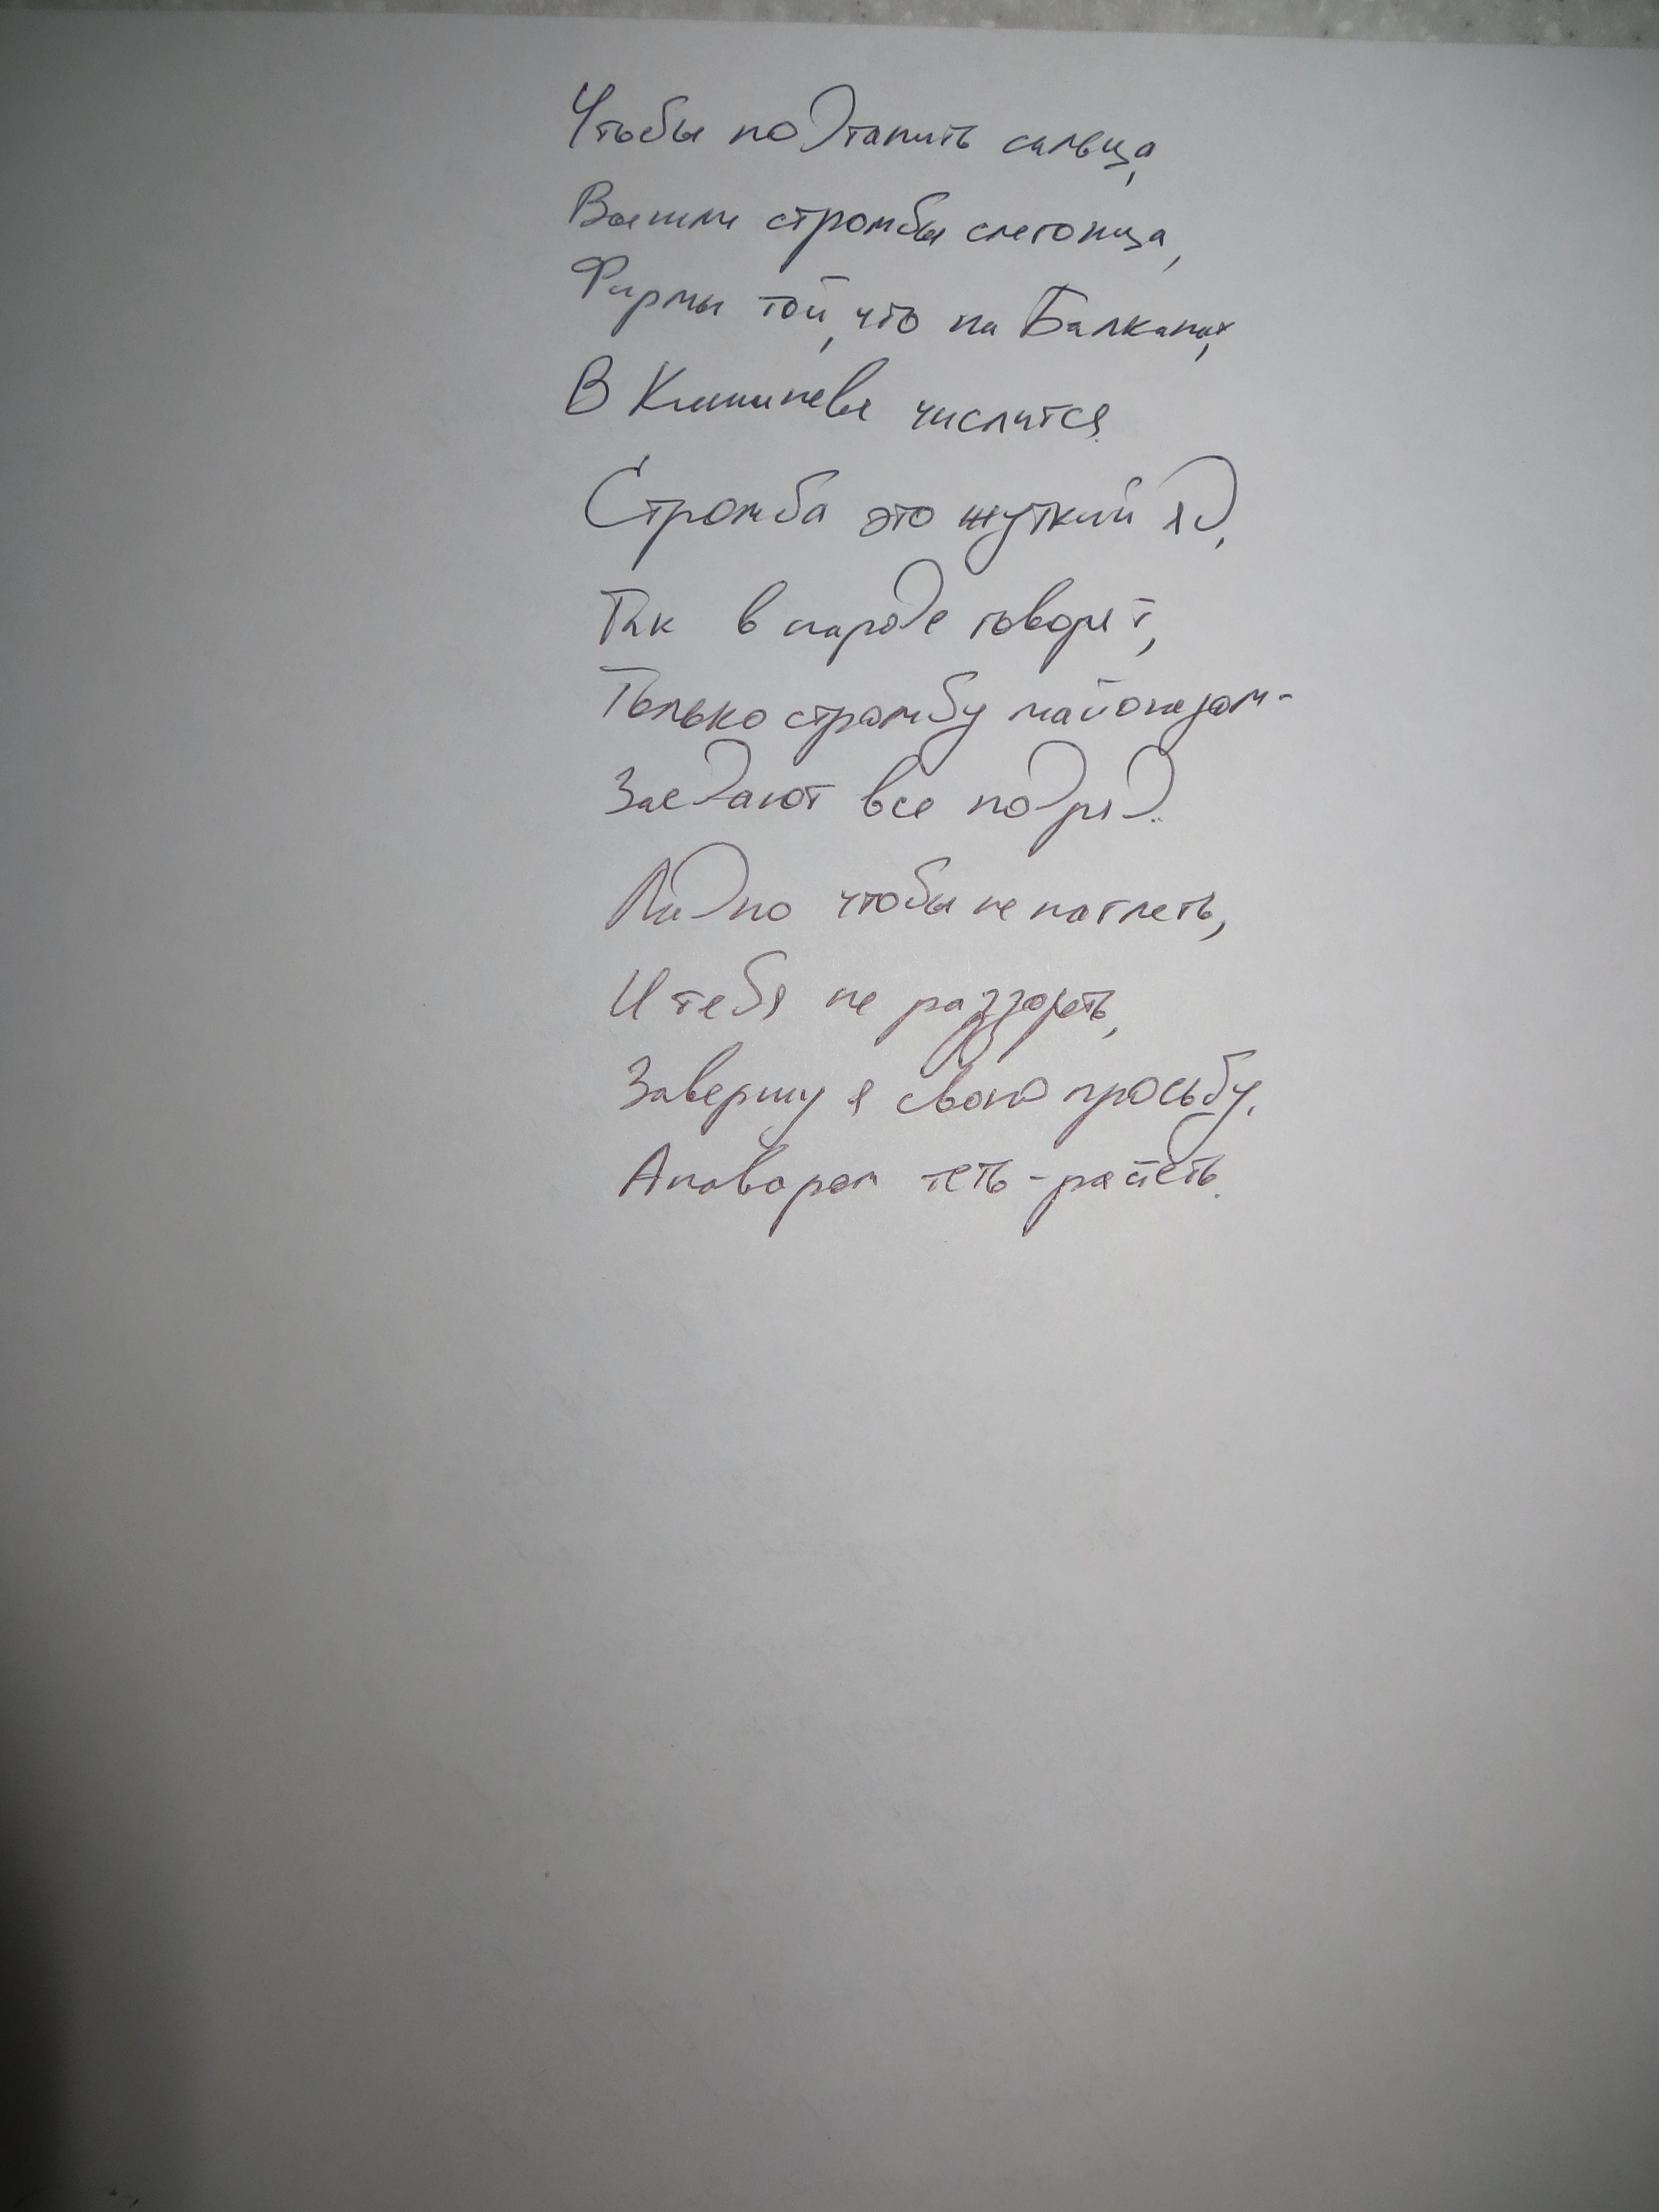 Чтобы подтапить сальца,
Вышли стромбы слегонца,
Фирмы той, что на Балканах,
В Кишиневе числится.
Стромба это жуткий яд,
Так в народе говорят,
Только стромбу майонезом-
Заедают все подряд.
Ладно чтобы не наглеть,
И тебя не раззореть,
Завершу я свою просьбу.
Анаваром теть-рететь.